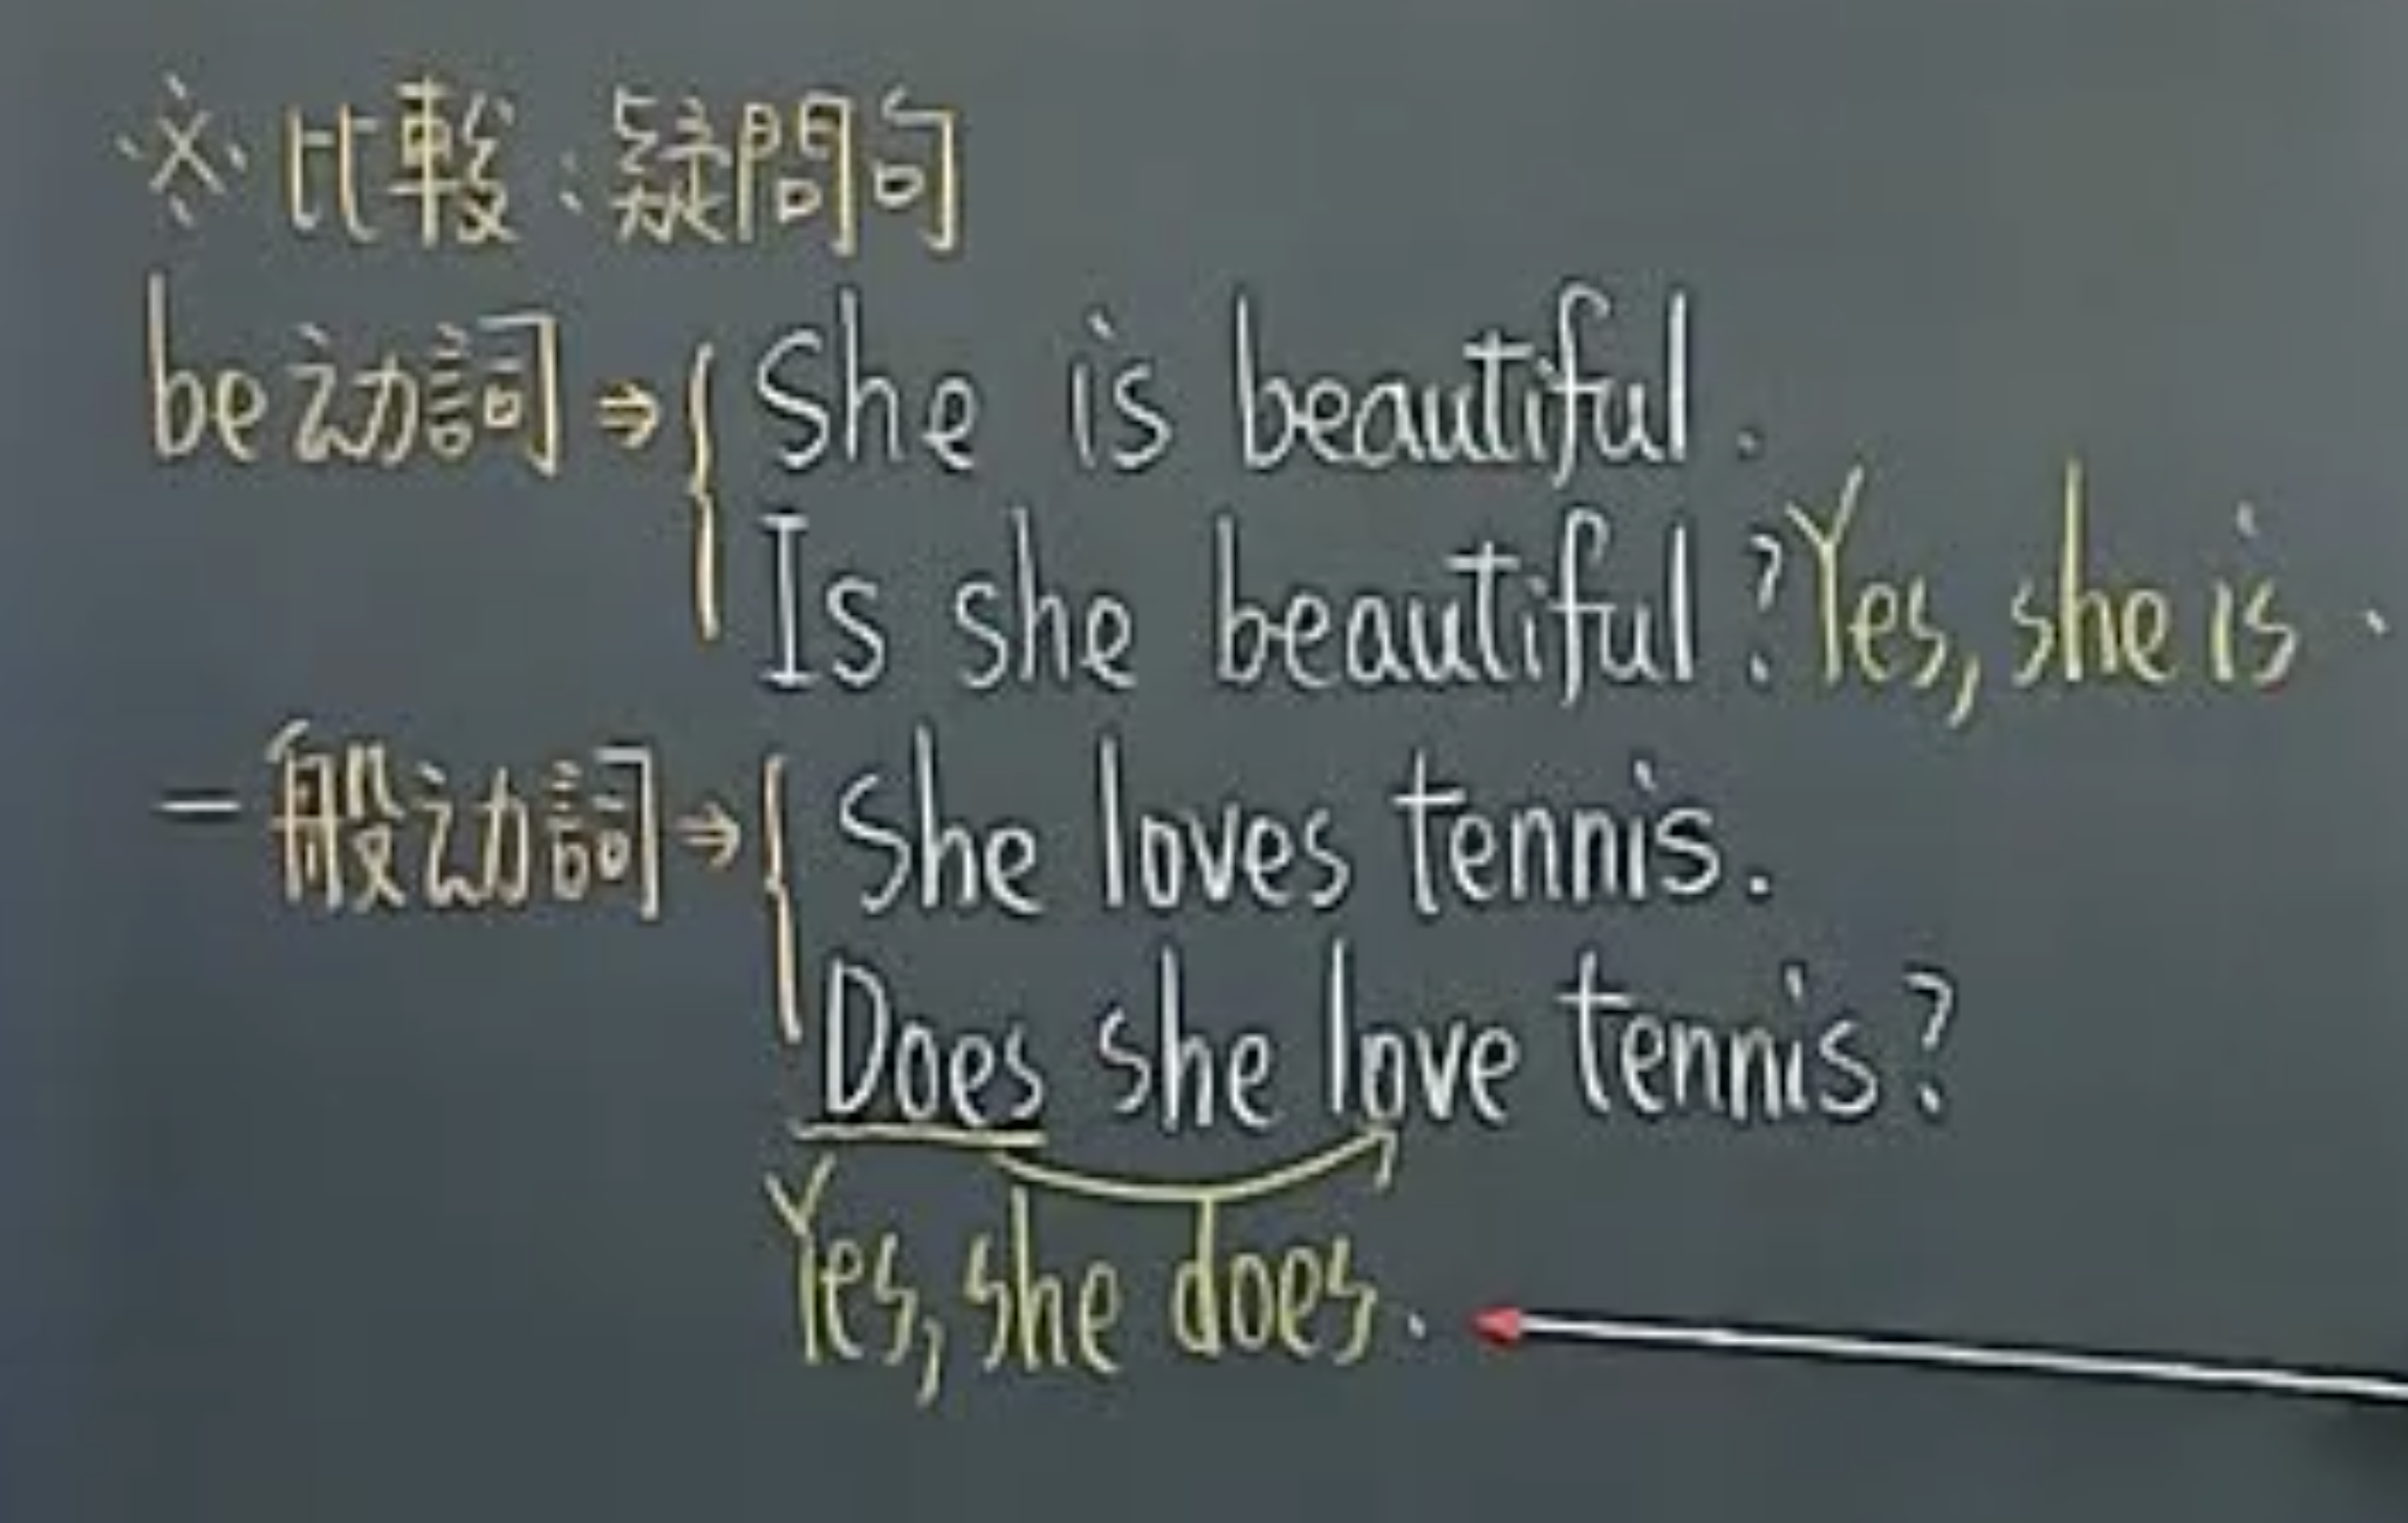 ※比較:疑問句
be动詞⇒{She is beautiful.
Is she beautiful? Yes, she is.
一般动詞⇒{She loves tennis.
Does she love tennis?
Yes, she does.